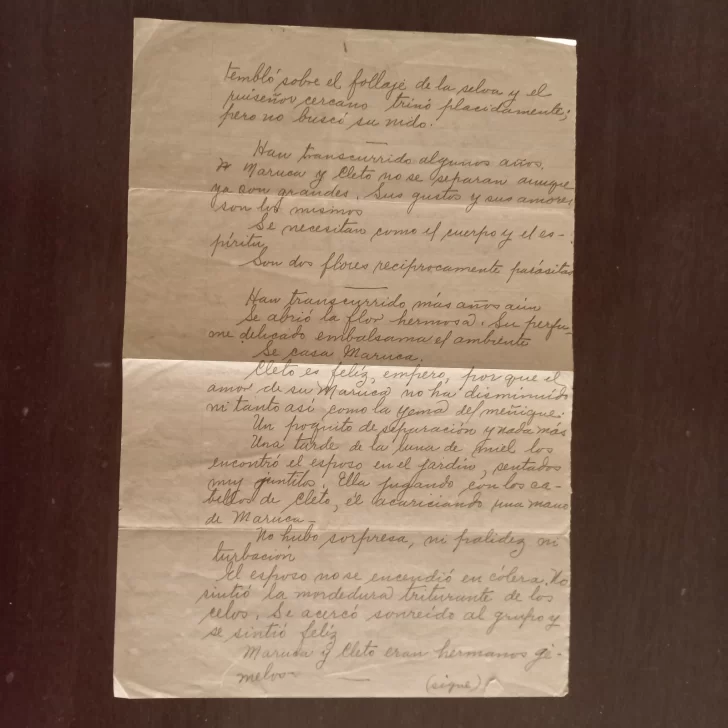 tembló sobre el follaje de la selva y el
ruiseñor cercano trinó placidamente;
pero no buscó su nido.
Han transcurrido algunos años.
Maruca y Cleto no se separan aunque
ya son grandes. Sus gustos y sus amores
son los mismos
Se necesitan como el cuerpo y el es-
píritu
Son dos flores reciprocamente parásitas
Han transcurrido más años aún
Se abrió la flor hermosa. Su perfu-
me delicado embalsama el ambiente
Se casa Maruca.
Cleto es feliz, empero, por que el
amor de su Maruca no ha disminuido
ni tanto así como la yema del meñique.
Un poquito de separación y nada más
Una tarde de la luna de miel los
encontró el esposo en el jardino, sentados
muy juntitos. Ella jugando con los ca-
bellos de Cleto, él acariciando una mano
de Maruca—
No hubo sorpresa, ni palidez ni
turbación
El esposo no se encendió en cólera. No
sintió la mordedura triturante de los
celos. Se acercó sonreído al grupo y
se sintió feliz
Maruca y Cleto eran hermanos ge-
melos—
(sigue)